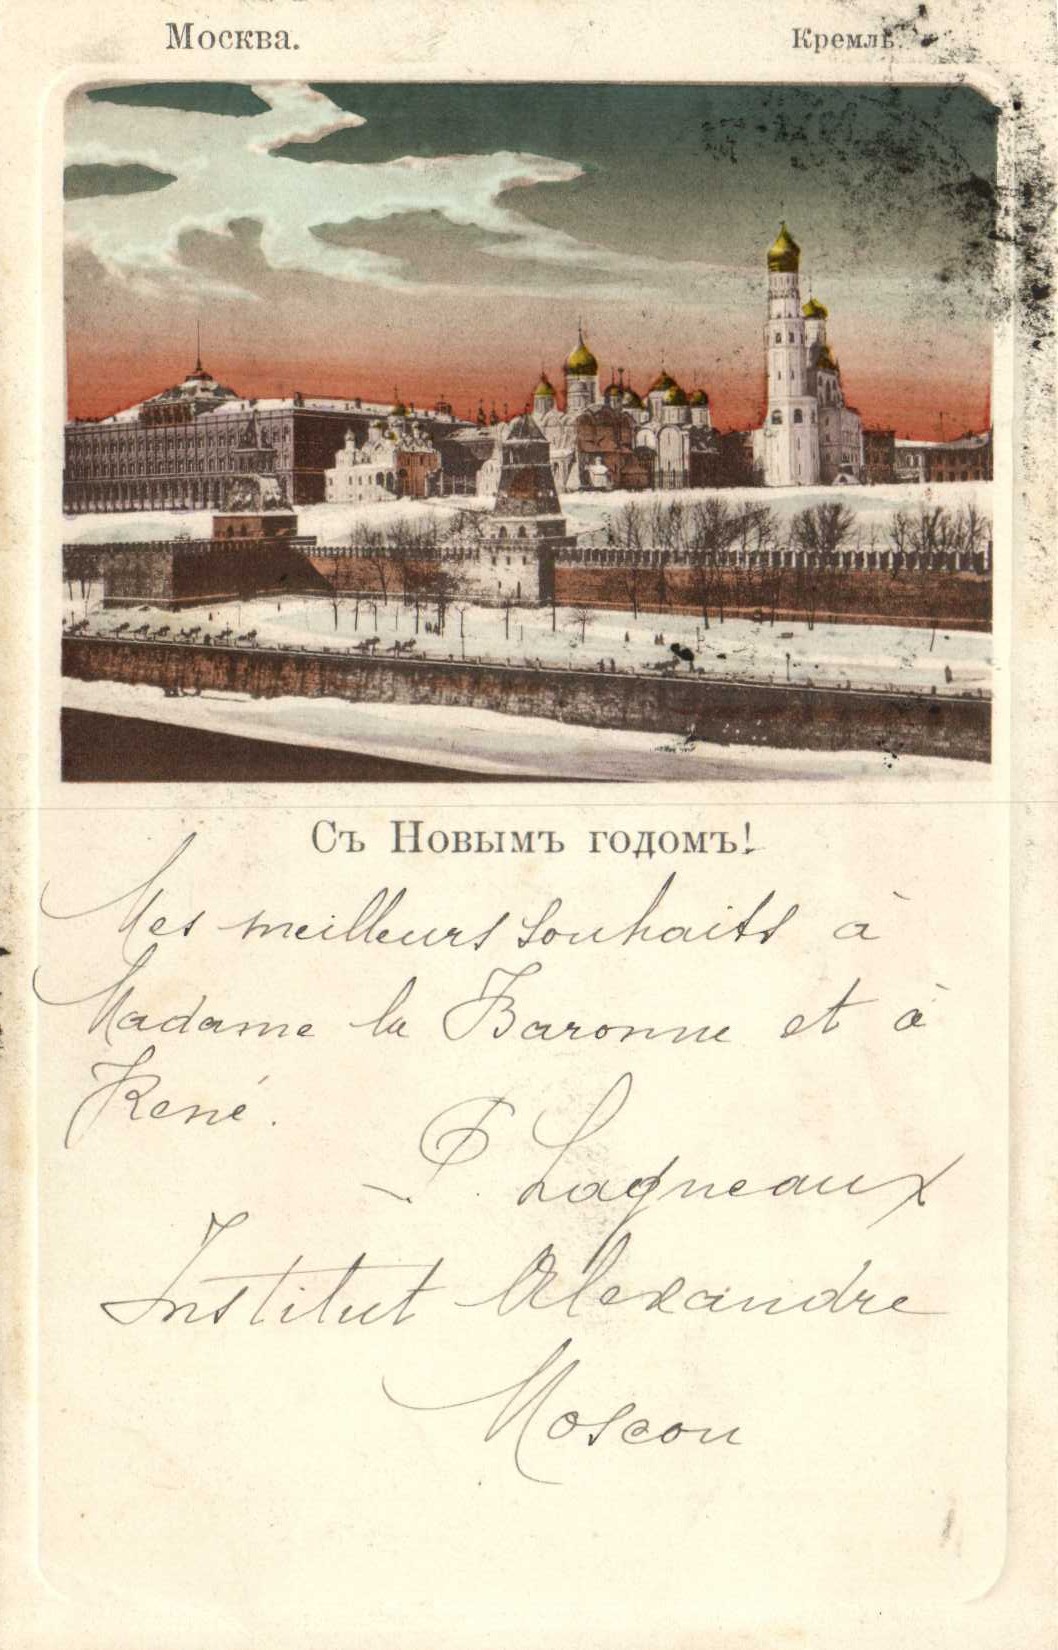 Москва.
Кремль.
Съ Новымъ годомъ!
Mes meilleurs souhaits à
Madame la Baronne et à
René.
P. Lagneaux
Institut Alexandre
Moscou